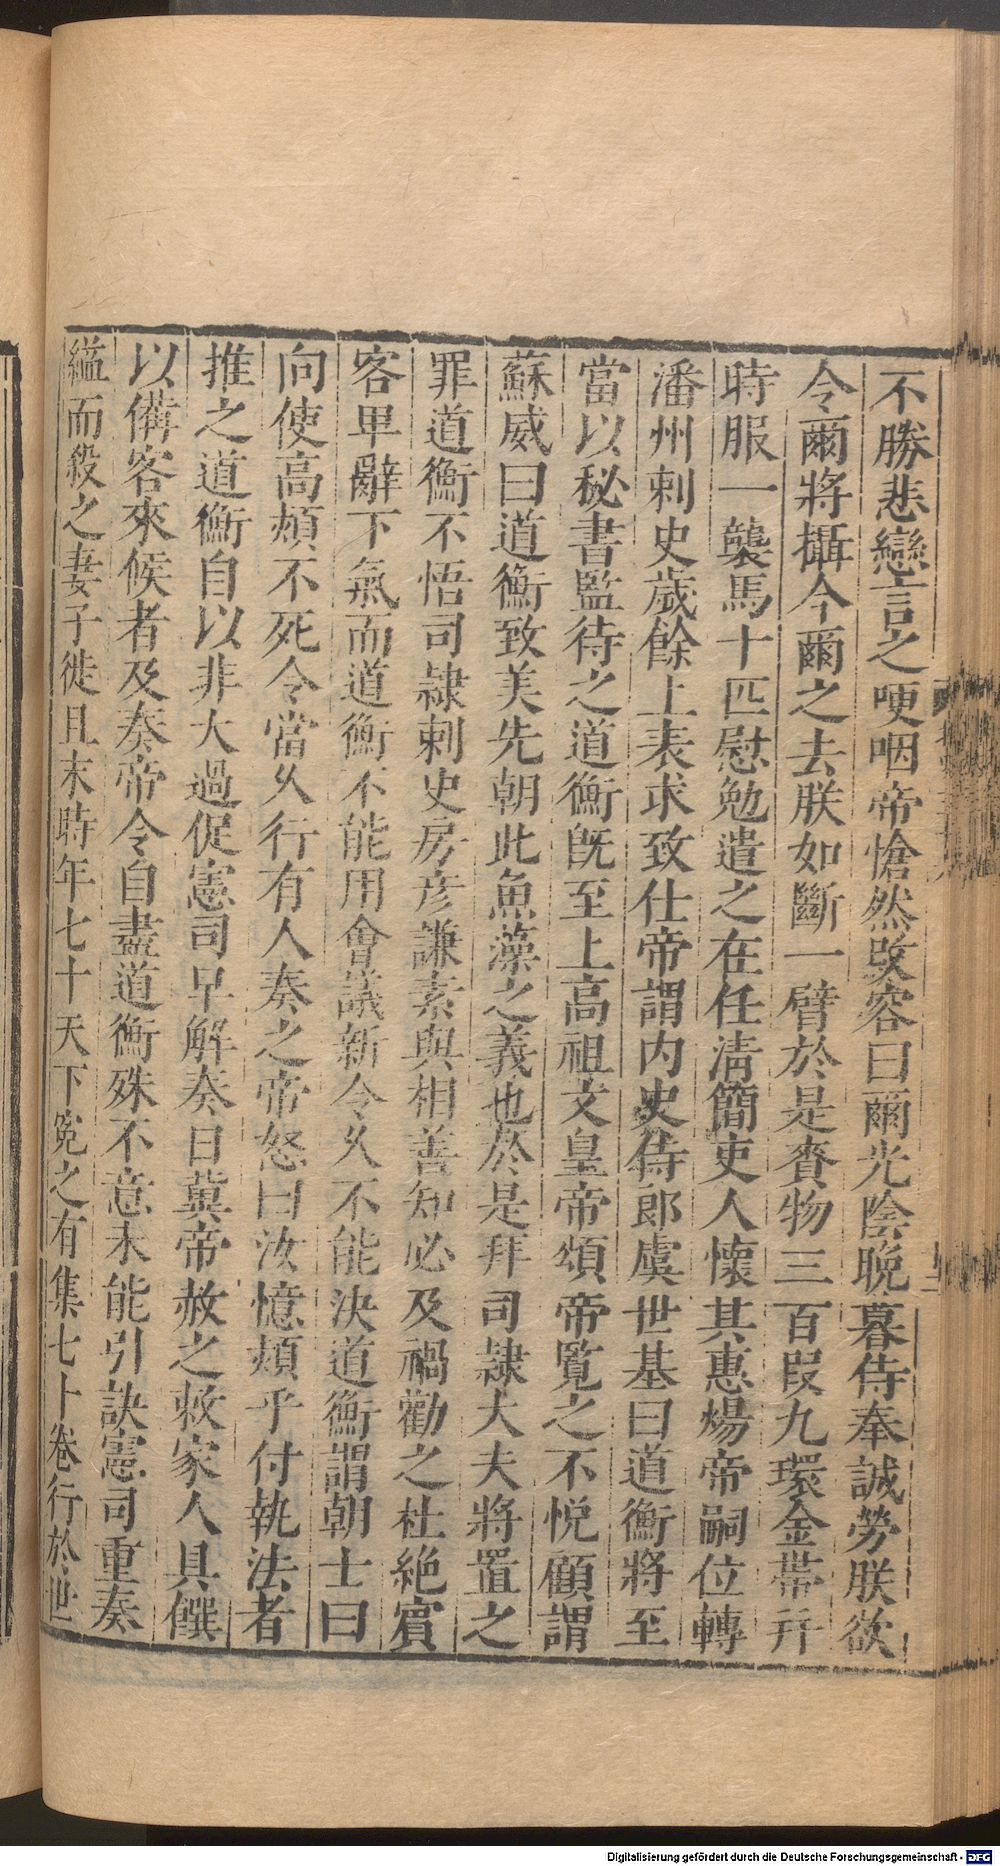 不勝悲戀言之哽咽帝愴然改容曰爾光陰晚暮侍奉誠勞朕欲
令爾將攝今爾之去朕如斷一臂於是賚物三百段九環金帶幷
時服一襲馬十匹慰勉遣之在任清簡吏人懷其惠煬帝嗣位轉
潘州刺史歲餘上表求致仕帝謂內史侍郎虞世基曰道衡將至
當以秘書監待之道衡旣至上高祖文皇帝頌帝覽之不悅顧謂
蘇威曰道衡致美先朝此魚藻之義也於是拜司隷大夫將置之
罪道衡不悟司隷刺史房彥謙素與相善知必及禍勸之杜絶賓
客卑辭下氣而道衡不能用會議新令久不能決道衡謂朝士曰
向使高熲不死令當久行有人奏之帝怒曰汝憶熲乎付執法者
推之道衡自以非大過促憲司早解奏日冀帝赦之敕家人具饌
以備客來候者及奏帝令自盡道衡殊不意未能引訣憲司重奏
縊而殺之妻子徙且末時年七十天下寃之有集七十卷行於世
Digitalisierung gefördert durch die Deutsche Forschungsgemeinschaft - DFG